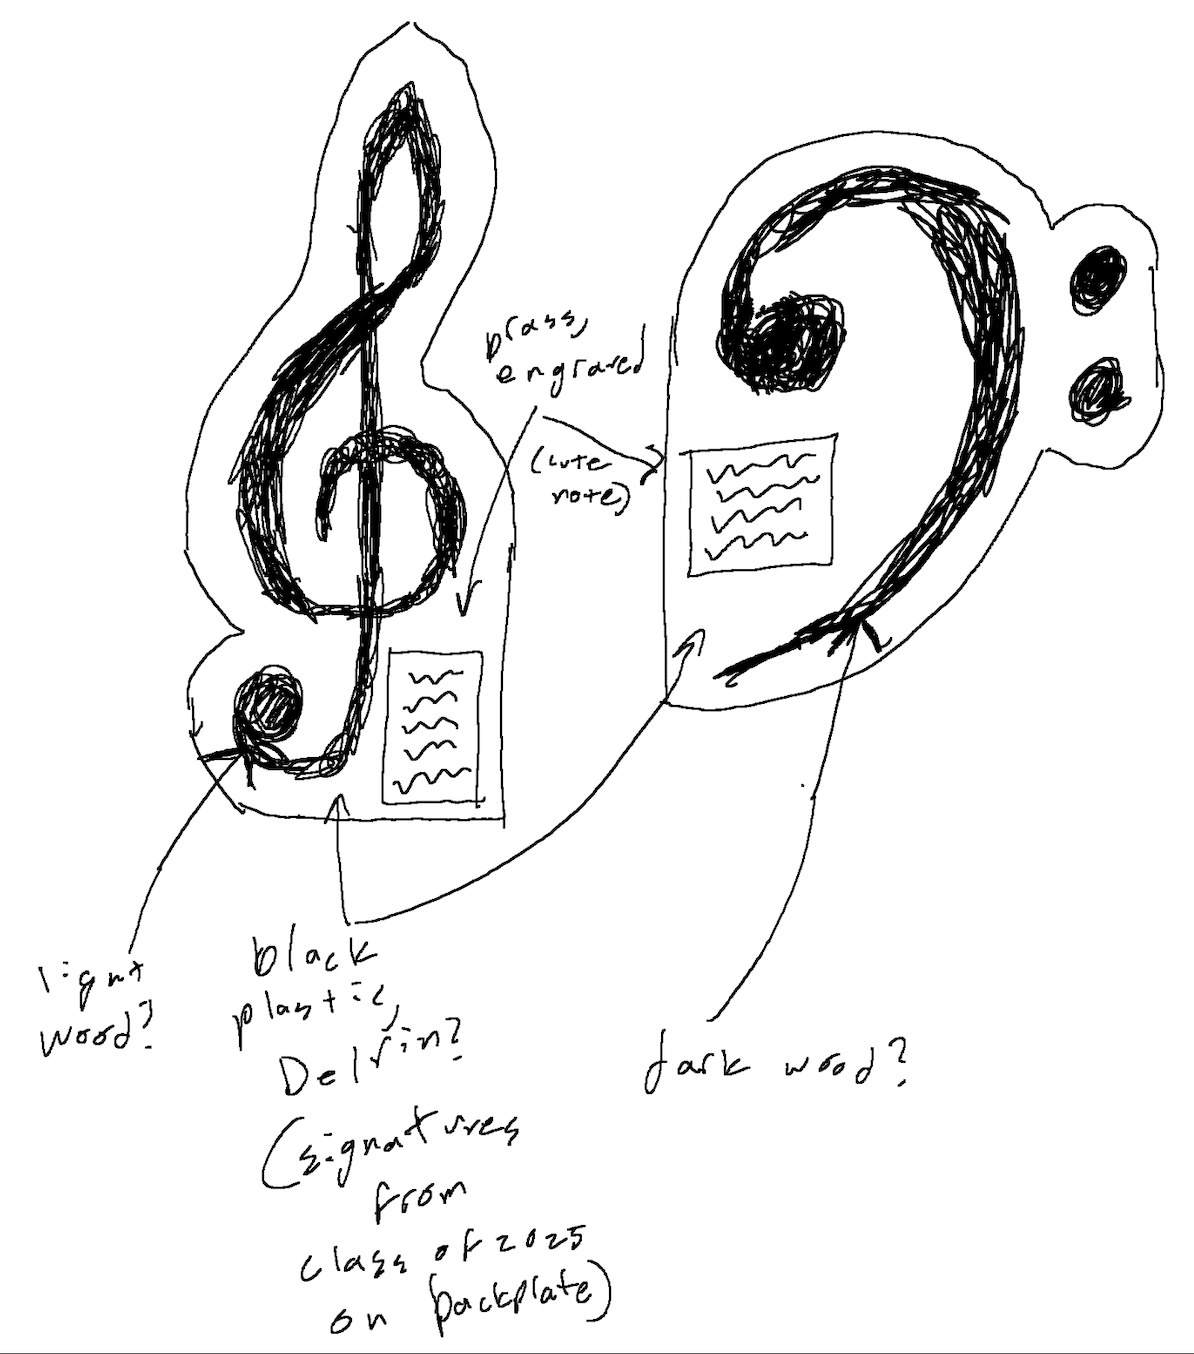 brass,
engraved
(cute
note)
light
wood?
black
plastic,
Delrin?
(signatures
from
class of 2025
on backplate)
dark wood?